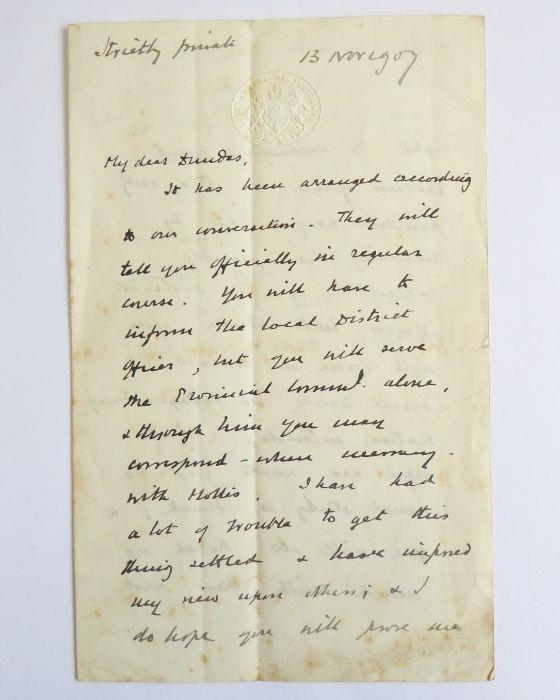 Strictly private 13 Nov 1907
My dear Dundas,
It has been arranged according
to our conversation. They will
tell you officially in regular
course. You will have to
inform the local District
Officer, but you will serve
the Provincial Commr. alone,
& through him you may
correspond – where necessary –
with Hollis. I have had
a lot of trouble to get this
thing settled & have imposed
my view upon others; & I
do hope you will prove me